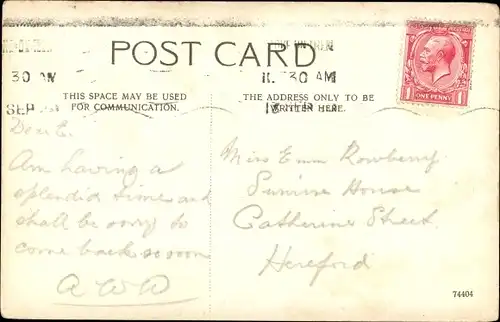 POST CARD
30 AM
11.30 AM
SEP
THIS SPACE MAY BE USED
FOR COMMUNICATION.
THE ADDRESS ONLY TO BE
WRITTEN HERE.
ONE PENNY
Dear E.
Am having a
splendid time and
shall be sorry to
come back so soon
A W D
Miss Rowberry
House
Catherine Street
Hereford
74404